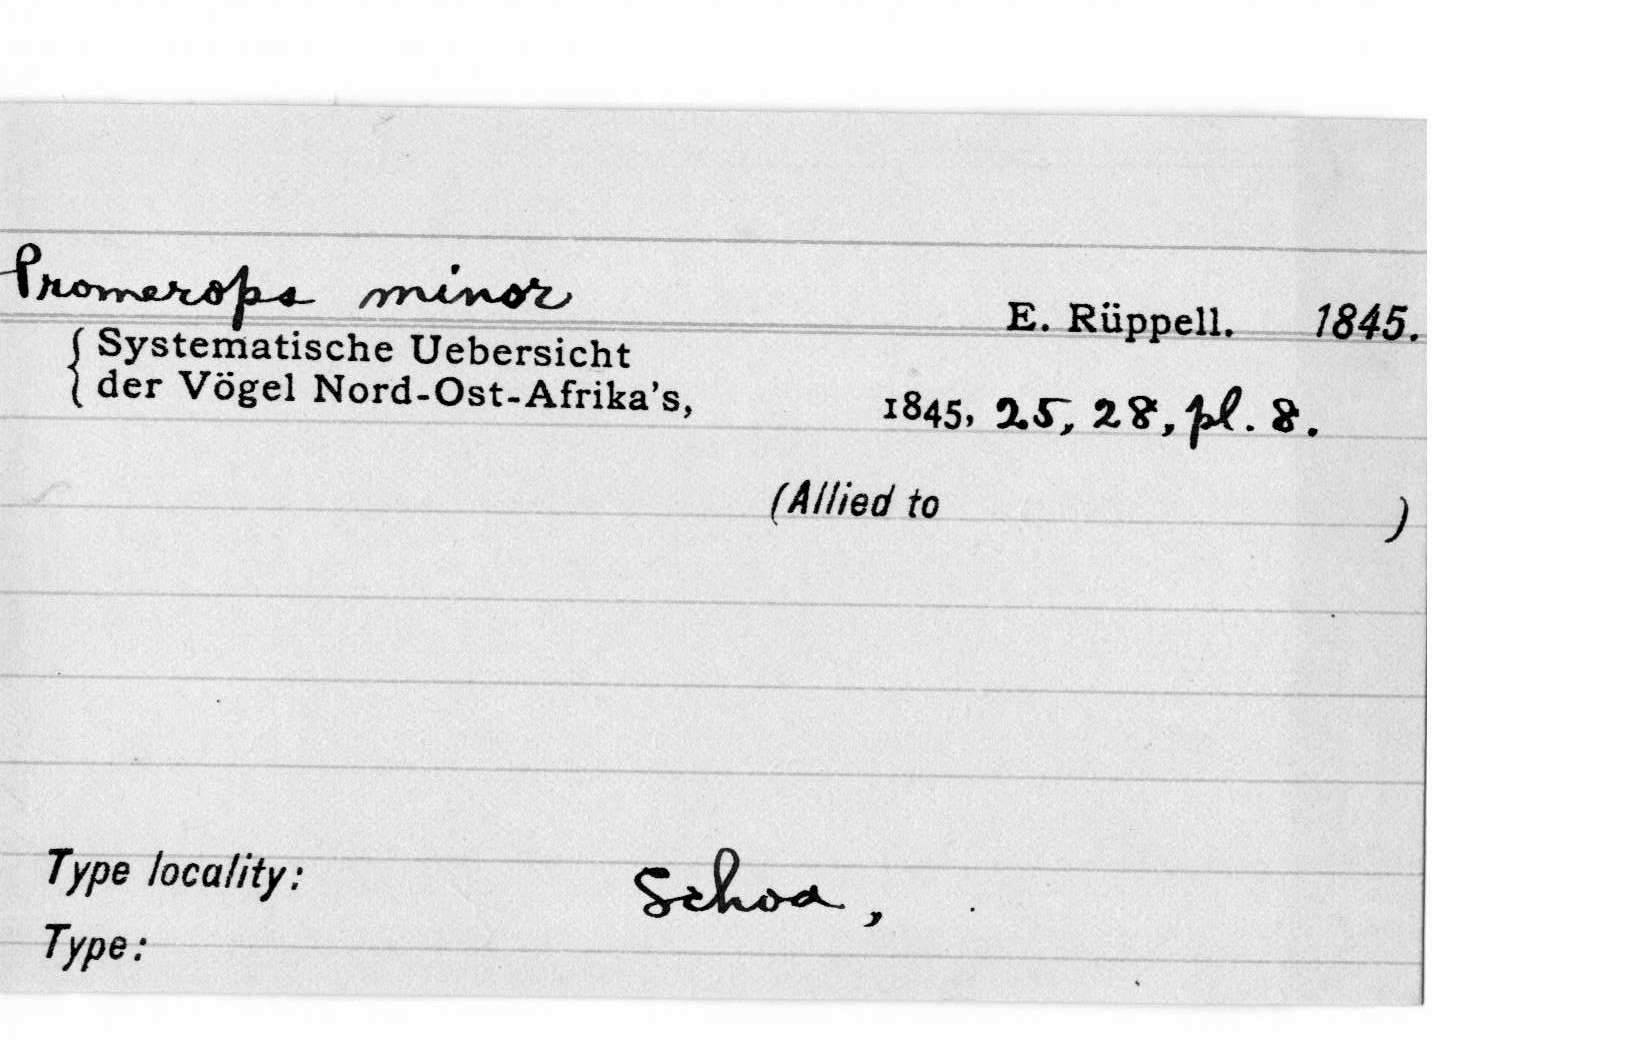 Promerops minor
E. Rüppell. 1845.
Systematische Uebersicht
der Vögel Nord-Ost-Afrika's,
1845, 25, 28, pl. 8.
(Allied to )
Type locality: Schoa,
Type: